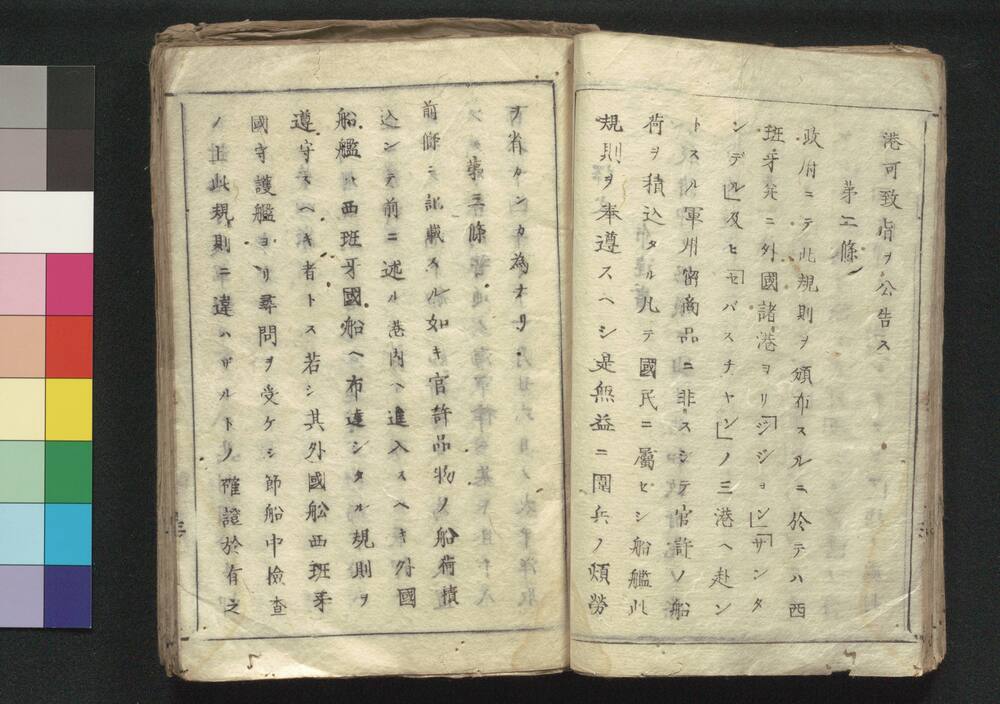 港可致旨ヲ公告ス
第二條
政府ニテ此規則ヲ頒布スルニ於テハ西
班牙并ニ外國諸港ヨリ「ジジョン」「サンタ
ンデル」及ヒ「セバスチヤン」ノ三港ヘ赴ン
トスル軍州密商品ニ非スシテ官許ノ船
荷ヲ積込タル凡テ國民ニ屬セシ船艦此
規則ヲ奉遵スヘシ是無益ニ圍兵ノ煩勞
ヲ省カンカ為ナリ
第三條
前條ニ記載スル如キ官許品物ノ船荷積
込ンテ前ニ述ル港内ヘ進入スヘキ外國
船艦ハ西班牙國船ヘ布達シタル規則ヲ
遵守スヘキ者トス若シ其外國舩西班牙
國守護艦ヨリ尋問ヲ受ケシ節船中撿査
ノ上此規則ニ違ハザルトノ確證於有之